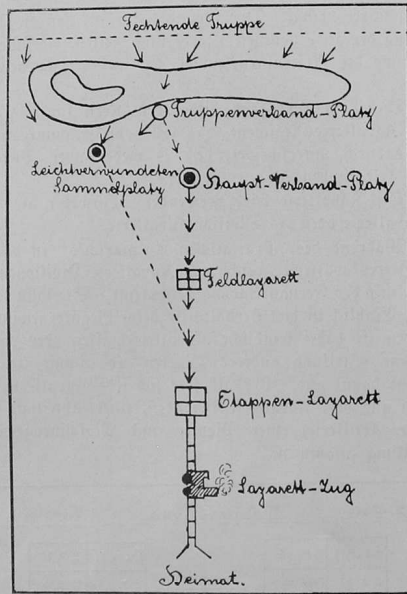 Fechtende Truppe
Truppenverband-Platz
Leichtverwundeten
Sammelplatz
Haupt-Verband-Platz
Feldlazarett
Etappen-Lazarett
Lazarett-Zug
Heimat.